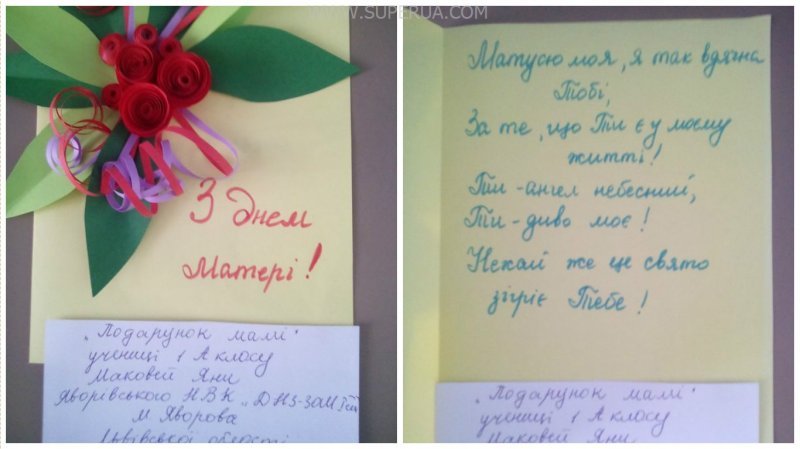 WWW.SUPERUA.COM
З Днем
Матері!
„Подарунок мамі"
учениці 1 А класу
Маковей Яни
Яворівського НВК „ДНЗ-ЗОШ І ст
м Яворова
Львівської області
Матусю моя, я так вдячна
Тобі,
За те, що Ти є у моєму
житті!
Ти - ангел небесний,
Ти - диво моє!
Нехай же це свято
зігріє Тебе!
„Подарунок мамі"
учениці 1 А класу
Маковей Яни